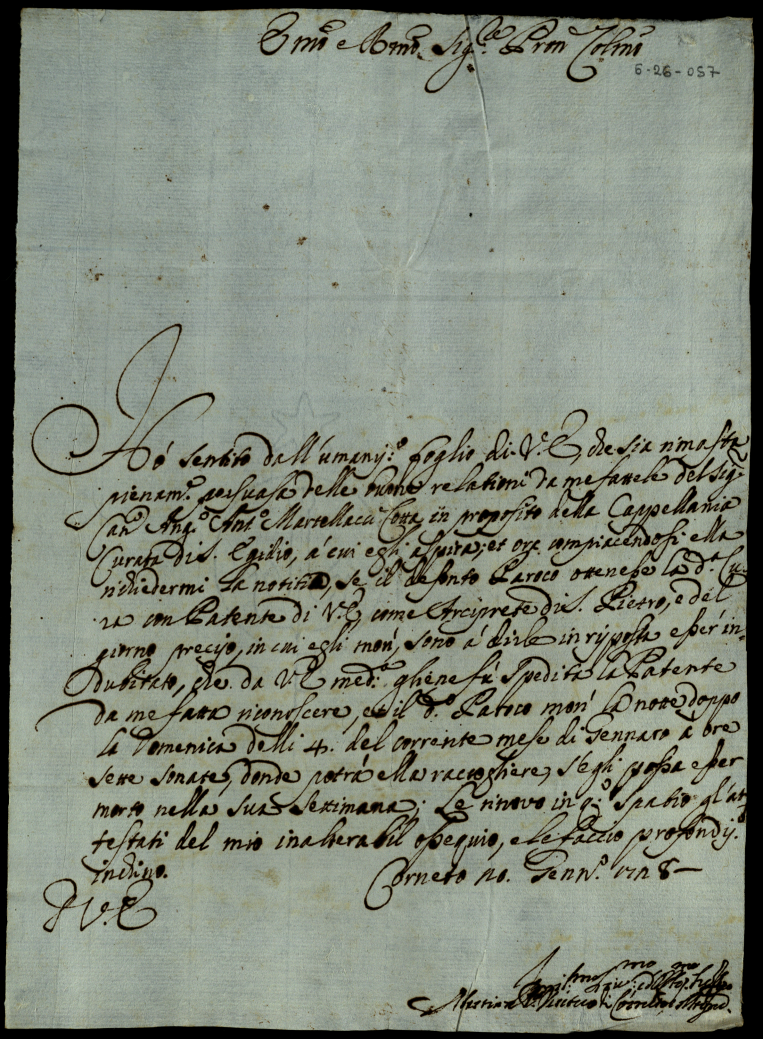 Emo e Rmo Sig.re Pron Colmo
6-26-057
Hò sentito dall'umaniss.o foglio di V.E, che sia rimasta
pienam.e persuasa delle buone relationi da me fattele del Sig.
Can.o Ang.o Ant.o Martellacci Cotta in proposito della Cappellania
Curata di S. Egidio, a' cui egli aspira; et ora compiacendosi ella
richiedermi la notitia, se il defonto Paroco ottenesse la d.a Cu-
ra con Patente di V.E, come Arciprete di S. Pietro, e del
giorno preciso, in cui egli morì, sono à dirle in risposta esser in-
dubitato, che da V.E med.a gliene fù spedita la Patente
da me fatta riconoscere, et il d.o Paroco morì la notte doppo
la Domenica delli 4. del corrente mese di Gennaro à ore
sette sonate, donde potrà ella raccogliere, s'egli possa esser
morto nella sua Settimana; Le rinovo in q.o spatio gl'at-
testati del mio inalterabil ossequio, e le faccio profondiss.o
inchino.
Corneto 10. Genn.o 1728
D V.E